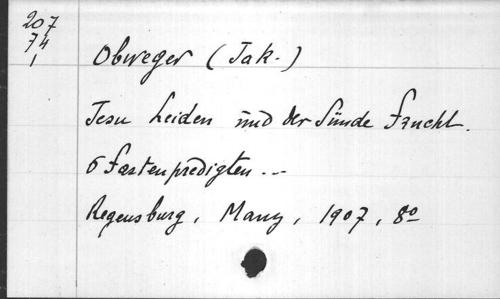 207
74
1
Obweger (Jak.)
Jesu Leiden und der Sünde Frucht.
6 Fastenpredigten...
Regensburg, Manz, 1907, 8º